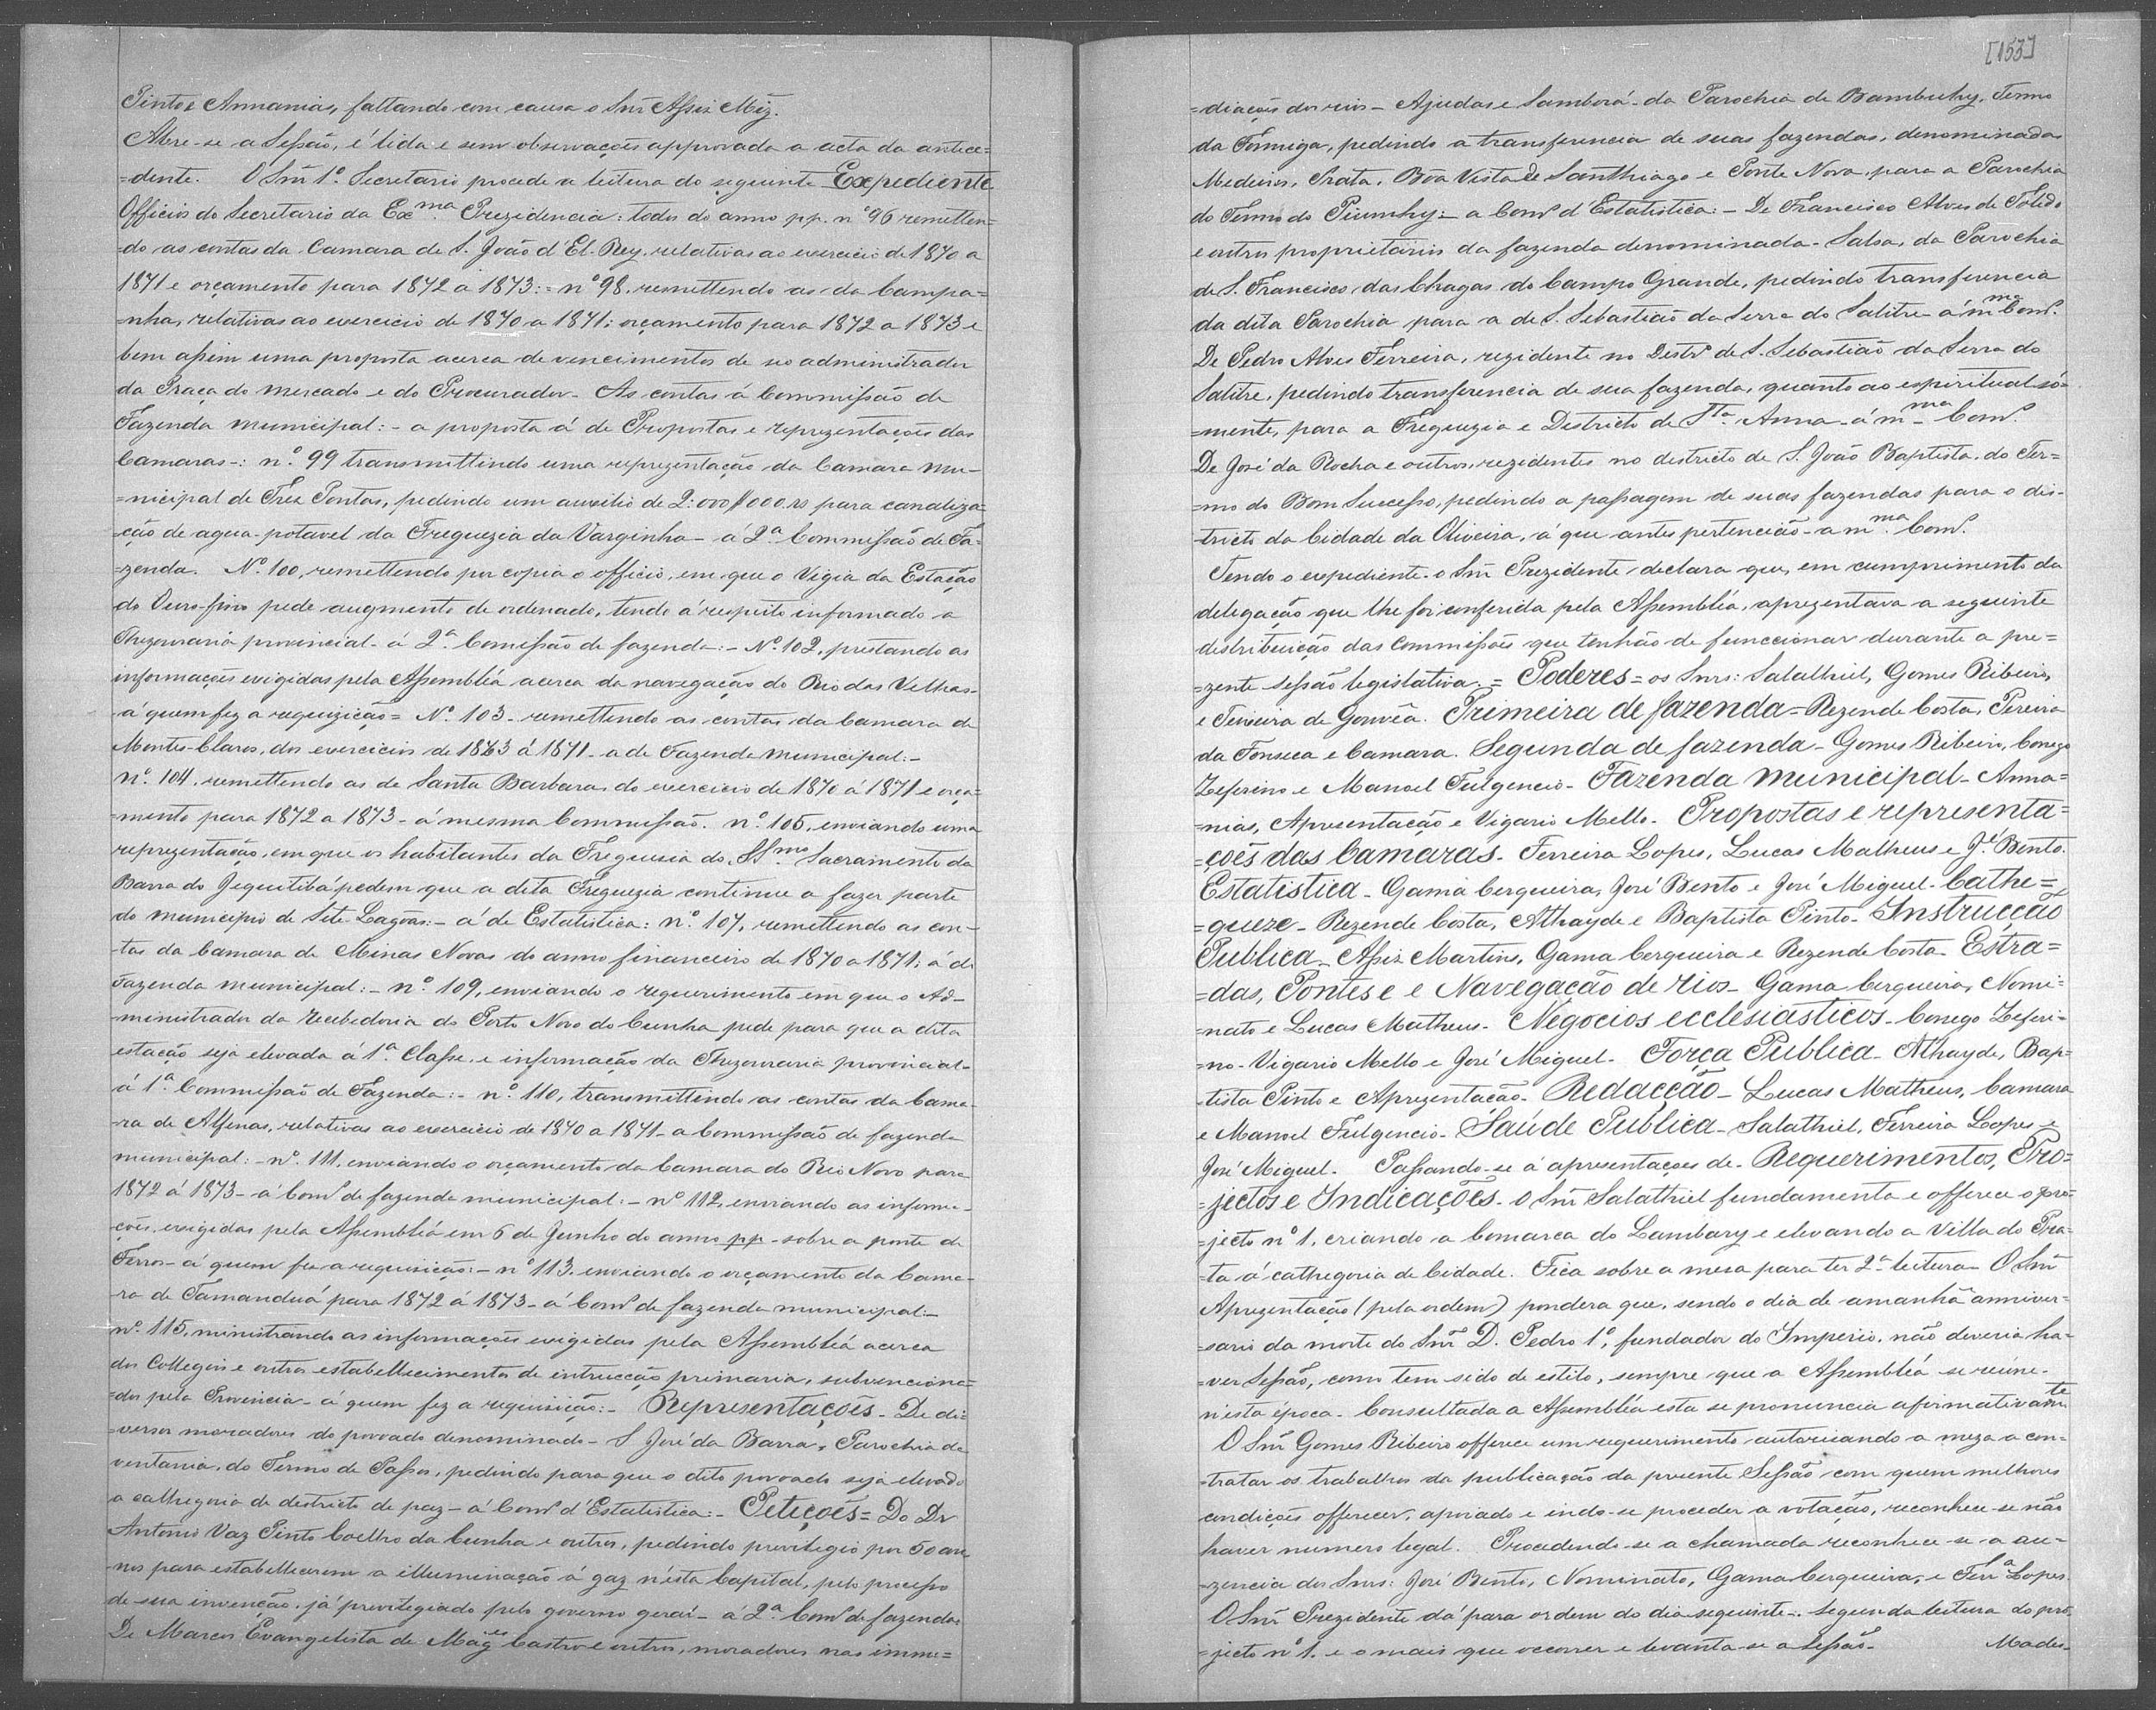 Pinto e Annanias, faltando com causa o Snr Assis Miz.
Abre-se a Sessão, é lida e sem observações approvada a acta da antece=
=dente. O Snr 1º. Secretario procede a leitura do seguinte Expediente
Officios do Secretario da Exma. Prezidencia: todos do anno pp. nº 96 remetten=
=do as contas da Camara de S. João d'El-Rey, relativas ao exercicio de 1870 a
1871 e orçamento para 1872 a 1873: = nº 98. remettendo as da Campa=
=nha, relativas ao exercicio de 1870 a 1871; orçamento para 1872 a 1873 e
bem assim uma proposta acerca de vencimentos de seo administrador
da Praça do mercado e do Procurador. As contas á Commissão de
Fazenda municipal: - a proposta á de Propostas e reprezentações das
Camaras-: nº. 99 transmittindo uma reprezentação da Camara mu-
=nicipal de Trez Pontas, pedindo um auxilio de 2:000$000 rs para canaliza=
=ção de agua-potavel da Freguezia da Varginha - á 2ª Commissão de Fa=
=zenda. Nº. 100, remettendo por copia o officio, em que o Vigia da Estação
do Ouro-fino pede augmento de ordenado, tendo á respeito informado a
Thezouraria provincial - á 2ª. Comissão de fazenda: - Nº. 102, prestando as
informações exigidas pela Assembléa acerca da navegação do Rio das Velhas-
á quem fez a requizição = Nº. 103 - remettendo as contas da Camara de
Montes-Claros, dos exercicios de 1863 á 1871 - a de Fazenda municipal: -
nº. 104. remettendo as de Santa Barbara do exercicio de 1870 á 1871 e orça=
=mento para 1872 a 1873 - á mesma Commissão. nº. 105, enviando uma
reprezentação, em que os habitantes da Freguesia do SSmo. Sacramento da
Barra do Jequitibá pedem que a dita Freguezia continue a fazer parte
do municipio de Sete Lagôas: - á de Estatistica: nº. 107, remettendo as con-
-tas da Camara de Minas Novas do anno financeiro de 1870 a 1871; á de
Fazenda municipal: - nº. 109, enviando o requerimento em que o Ad-
-ministrador da Recebedoria do Porto Novo do Cunha pede para que a dita
estação seja elevada á 1ª. Classe, e informação da Thezouraria provincial-
á 1ª. Commissão de Fazenda: - nº. 110, transmittindo as contas da Cama-
-ra de Alfenas, relativas ao exercicio de 1870 a 1871 - a Commissão de fazenda
municipal: - nº. 111. enviando o orçamento da Camara do Rio Novo para
1872 á 1873 - á Comm de fazenda municipal: - nº 112, enviando as informa-
-ções exigidas pela Assembléa em 6 de Junho do anno pp - sobre a ponte de
Ferros - á quem fez a requisição: - nº 113. enviando o orçamento da Cama-
-ra de Tamanduá para 1872 á 1873 - á Comm de fazenda municipal: -
nº. 115, ministrando as informações exigidas pela Assembléa acerca
dos Collegios e outros estabellecimentos de intrucção primaria, subvenciona=
=dos pela Provincia - á quem fez a requisição: - Representações - De di=
=versos moradores do povoado denominado - S. José da Barra, Parochia da
ventania, do Termo de Passos, pedindo para que o dito povoado seja elevado
a cathegoria de districto de paz - á Comm d'Estatistica: - Petições = Do Dr
Antonio Vaz Pinto Coelho da Cunha e outros, pedindo previlegio por 50 an-
-nos para estabellecerem a illuminação á gaz n'esta Capital, pelo processo
de sua invenção, já previlegiado pelo governo geral - á 2ª. Comm de fazenda:
De Marcos Evangelista de Mages Castro e outros, moradores nas imme=
[153]
=diações dos rios - Ajudas e Samborá - da Parochia de Bambuhy, Termo
da Formiga, pedindo a transferencia de suas fazendas, denominadas
Medeiros, Prata, Bôa Vista de Santhiago e Ponte Nova, para a Parochia
do Termo do Piumhy: - a Comm d'Estatistica: - De Francisco Alves de Tolêdo
e outros proprietarios da fazenda denominada - Salsa, da Parochia
de S. Francisco das Chagas do Campo Grande, pedindo transferencia
da dita Parochia para a de S. Sebastião da Serra do Salitre - á mma Comm.
De Pedro Alves Ferreira, rezidente no Destr de S. Sebastião da Serra do
Salitre, pedindo transferencia de sua fazenda, quanto ao espiritual só-
=mente, para a Freguezia e Districto de Sta. Anna - á mma Comm.
De José da Rocha e outros, rezidentes no districto de S. João Baptista, do Ter=
=mo do Bom Successo, pedindo a passagem de suas fazendas para o dis-
-tricto da Cidade da Oliveira, á que antes pertencião - a mma. Comm.
Tendo o expediente - o Snr Prezidente declara que, em cumprimento da
delegação que lhe foi conferida pela Assembléa, aprezentava a seguinte
distribuição das Commissões que tenhão de funccionar durante a pre=
=zente sessão legislativa. = Poderes = os Snrs: Salathiel, Gomes Ribeiro,
e Teixeira de Gouvêa. Primeira de fazenda = Rezende Costa, Pereira
da Fonseca e Camara. Segunda de fazenda - Gomes Ribeiro, Conego
Zeferino e Manoel Fulgencio - Fazenda municipal - Anna=
=nias, Apresentação e Vigario Mello. Propostas e representa=
=ções das Camaras. Ferreira Lopes, Lucas Matheus e Jé Bento.
Estatistica - Gama Cerqueira, José Bento e José Miguel - Cathe=
=queze - Rezende Costa, Athayde e Baptista Pinto - Instrucção
Publica - Assis Martins, Gama Cerqueira e Rezende Costa - Estra=
=das, Pontes e e Navegação de rios - Gama Cerqueira, Nomi=
=nato e Lucas Matheus - Negocios ecclesiasticos - Conego Zeferi=
=no - Vigario Mello e José Miguel - Força Publica - Athayde, Bap=
-tista Pinto e Aprezentação - Redacção - Lucas Matheus, Camara
e Manoel Fulgencio - Saúde Publica - Salathiel, Ferreira Lopes e
José Miguel. Passando-se á apresentações de - Requerimentos, Pro=
=jectos e Indicações - O Snr Salathiel fundamenta e offerece o pro=
=jecto nº 1, criando a Comarca do Lambary e elevando a Villa do Pra=
=ta á cathegoria de Cidade. Fica sobre a mesa para ter 2ª leitura - O Snr
Aprezentação (pela ordem) pondera que, sendo o dia de amanhã anniver=
=sario da morte do Snr D. Pedro 1º, fundador do Imperio, não deveria ha-
=ver Sessão, como tem sido de estilo, sempre que a Assembléa se reúne -
n'esta época - Consultada a Assembléa esta se pronuncia afirmativamte
O Snr Gomes Ribeiro offerece um requerimento autorisando a meza a con-
-tratar os trabalhos da publicação da prezente Sessão com quem melhores
condições offerecer, apoiado e indo-se proceder a votação, reconhece-se não
haver numero legal. Procedendo-se a chamada reconhece-se a au-
-zencia dos Snrs: José Bento, Nominato, Gama Cerqueira, e Fera Lopes.
O Snr Prezidente dá para ordem do dia seguinte - segunda leitura do pro-
=jecto nº 1. e o mais que occorrer e levanta-se a Sessão -